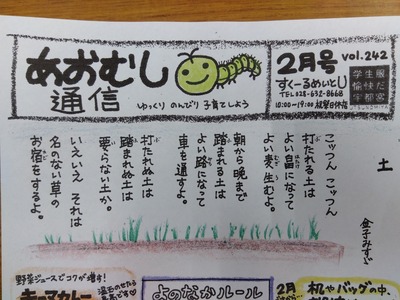 あおむし
通信
ゆっくり のんびり 子育てしよう
2月号
vol.242
すくーるめいとU
TEL 028-632-8668
10:00~19:00
学生服
愉快だ
宇都宮
土
金子みすゞ
こッつん こッつん
打たれる土は
よい畠になって
よい麦生むよ。
朝から晩まで
踏まれる土は
よい路になって
車を通すよ。
打たれぬ土は
踏まれぬ土は
要らない土か。
いえいえ それは
名のない草の
お宿をするよ。
野菜ジュースでコクが増す!
キーマカレー
よのなかルール
2月
机やバッグの中、